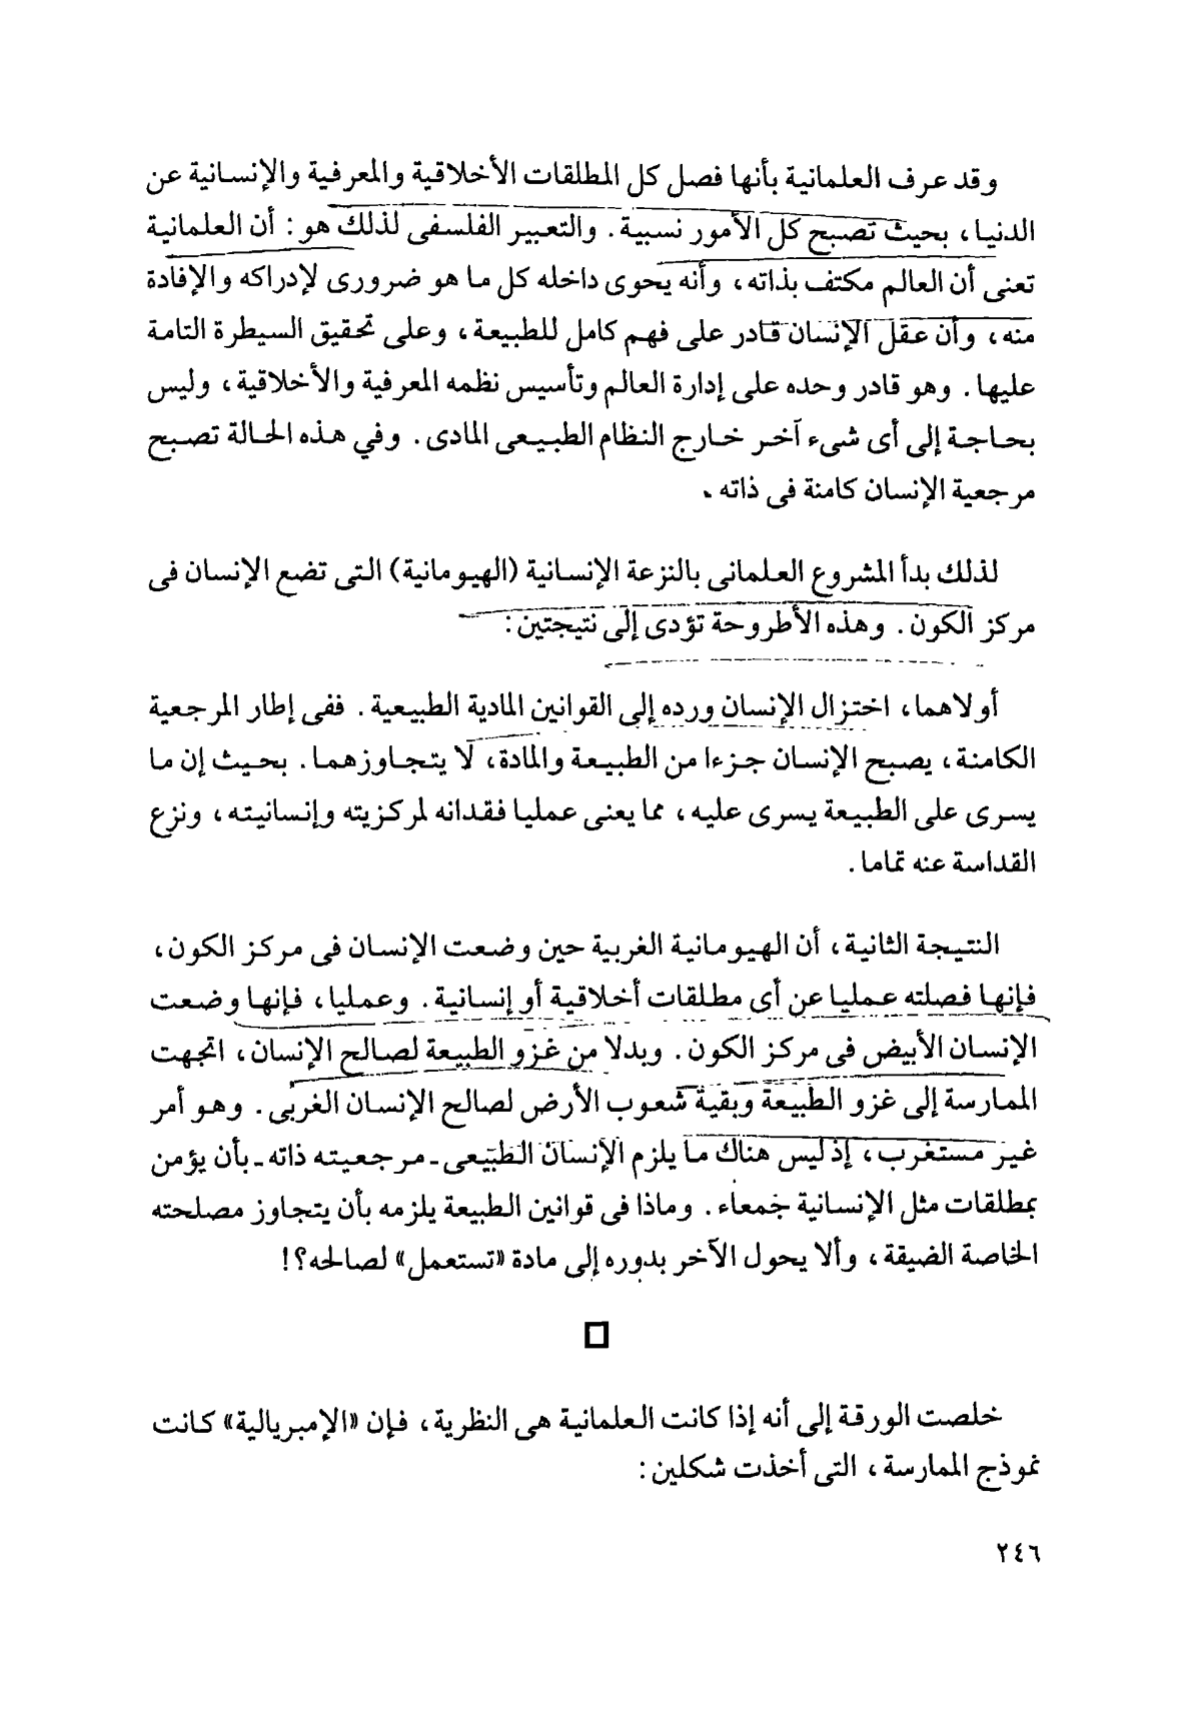 وقد عرف العلمانية بأنها فصل كل المطلقات الأخلاقية والمعرفية والإنسانية عن
الدنيا، بحيث تصبح كل الأمور نسبية. والتعبير الفلسفى لذلك هو: أن العلمانية
تعنى أن العالم مكتف بذاته، وأنه يحوى داخله كل ما هو ضرورى لإدراكه والإفادة
منه، وأن عقل الإنسان قادر على فهم كامل للطبيعة، وعلى تحقيق السيطرة التامة
عليها. وهو قادر وحده على إدارة العالم وتأسيس نظمه المعرفية والأخلاقية، وليس
بحاجة إلى أى شىء آخر خارج النظام الطبيعى المادى. وفي هذه الحالة تصبح
مرجعية الإنسان كامنة فى ذاته.
لذلك بدأ المشروع العلمانى بالنزعة الإنسانية (الهيومانية) التى تضع الإنسان فى
مركز الكون. وهذه الأطروحة تؤدى إلى نتيجتين:
أولاهما، اختزال الإنسان ورده إلى القوانين المادية الطبيعية. ففى إطار المرجعية
الكامنة، يصبح الإنسان جزءا من الطبيعة والمادة، لا يتجاوزهما. بحيث إن ما
يسرى على الطبيعة يسرى عليه، مما يعنى عمليا فقدانه لمركزيته وإنسانيته، ونزع
القداسة عنه تماما.
النتيجة الثانية، أن الهيومانية الغربية حين وضعت الإنسان فى مركز الكون،
فإنها فصلته عمليا عن أى مطلقات أخلاقية أو إنسانية. وعمليا، فإنها وضعت
الإنسان الأبيض فى مركز الكون. وبدلا من غزو الطبيعة لصالح الإنسان، اتجهت
الممارسة إلى غزو الطبيعة وبقية شعوب الأرض لصالح الإنسان الغربى. وهو أمر
غير مستغرب، إذ ليس هناك ما يلزم الإنسان الطبيعى ـ مرجعيته ذاته ـ بأن يؤمن
بمطلقات مثل الإنسانية جمعاء. وماذا فى قوانين الطبيعة يلزمه بأن يتجاوز مصلحته
الخاصة الضيقة، وألا يحول الآخر بدوره إلى مادة «تستعمل» لصالحه؟!
خلصت الورقة إلى أنه إذا كانت العلمانية هى النظرية، فإن «الإمبريالية» كانت
نموذج الممارسة، التى أخذت شكلين:
٢٤٦